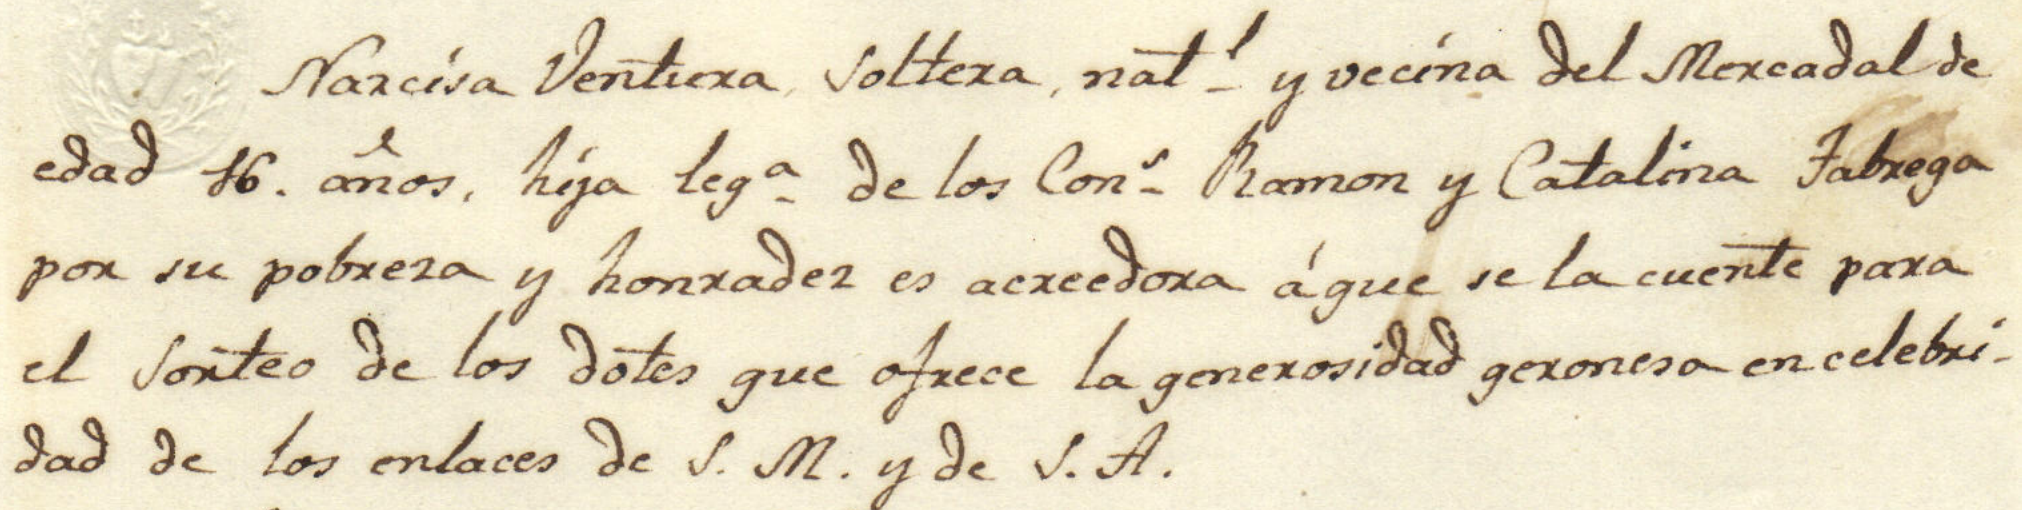 Narcisa Ventura, Soltera, nat.l y vecina del Mercadal de
edad 16. años, hija leg.a de los Con.s Ramon y Catalina Fabrega
por su pobreza y honradez es acreedora á que se la cuente para
el Sorteo de los dotes que ofrece la generosidad geronesa en celebri-
dad de los enlaces de S. M. y de S. A.